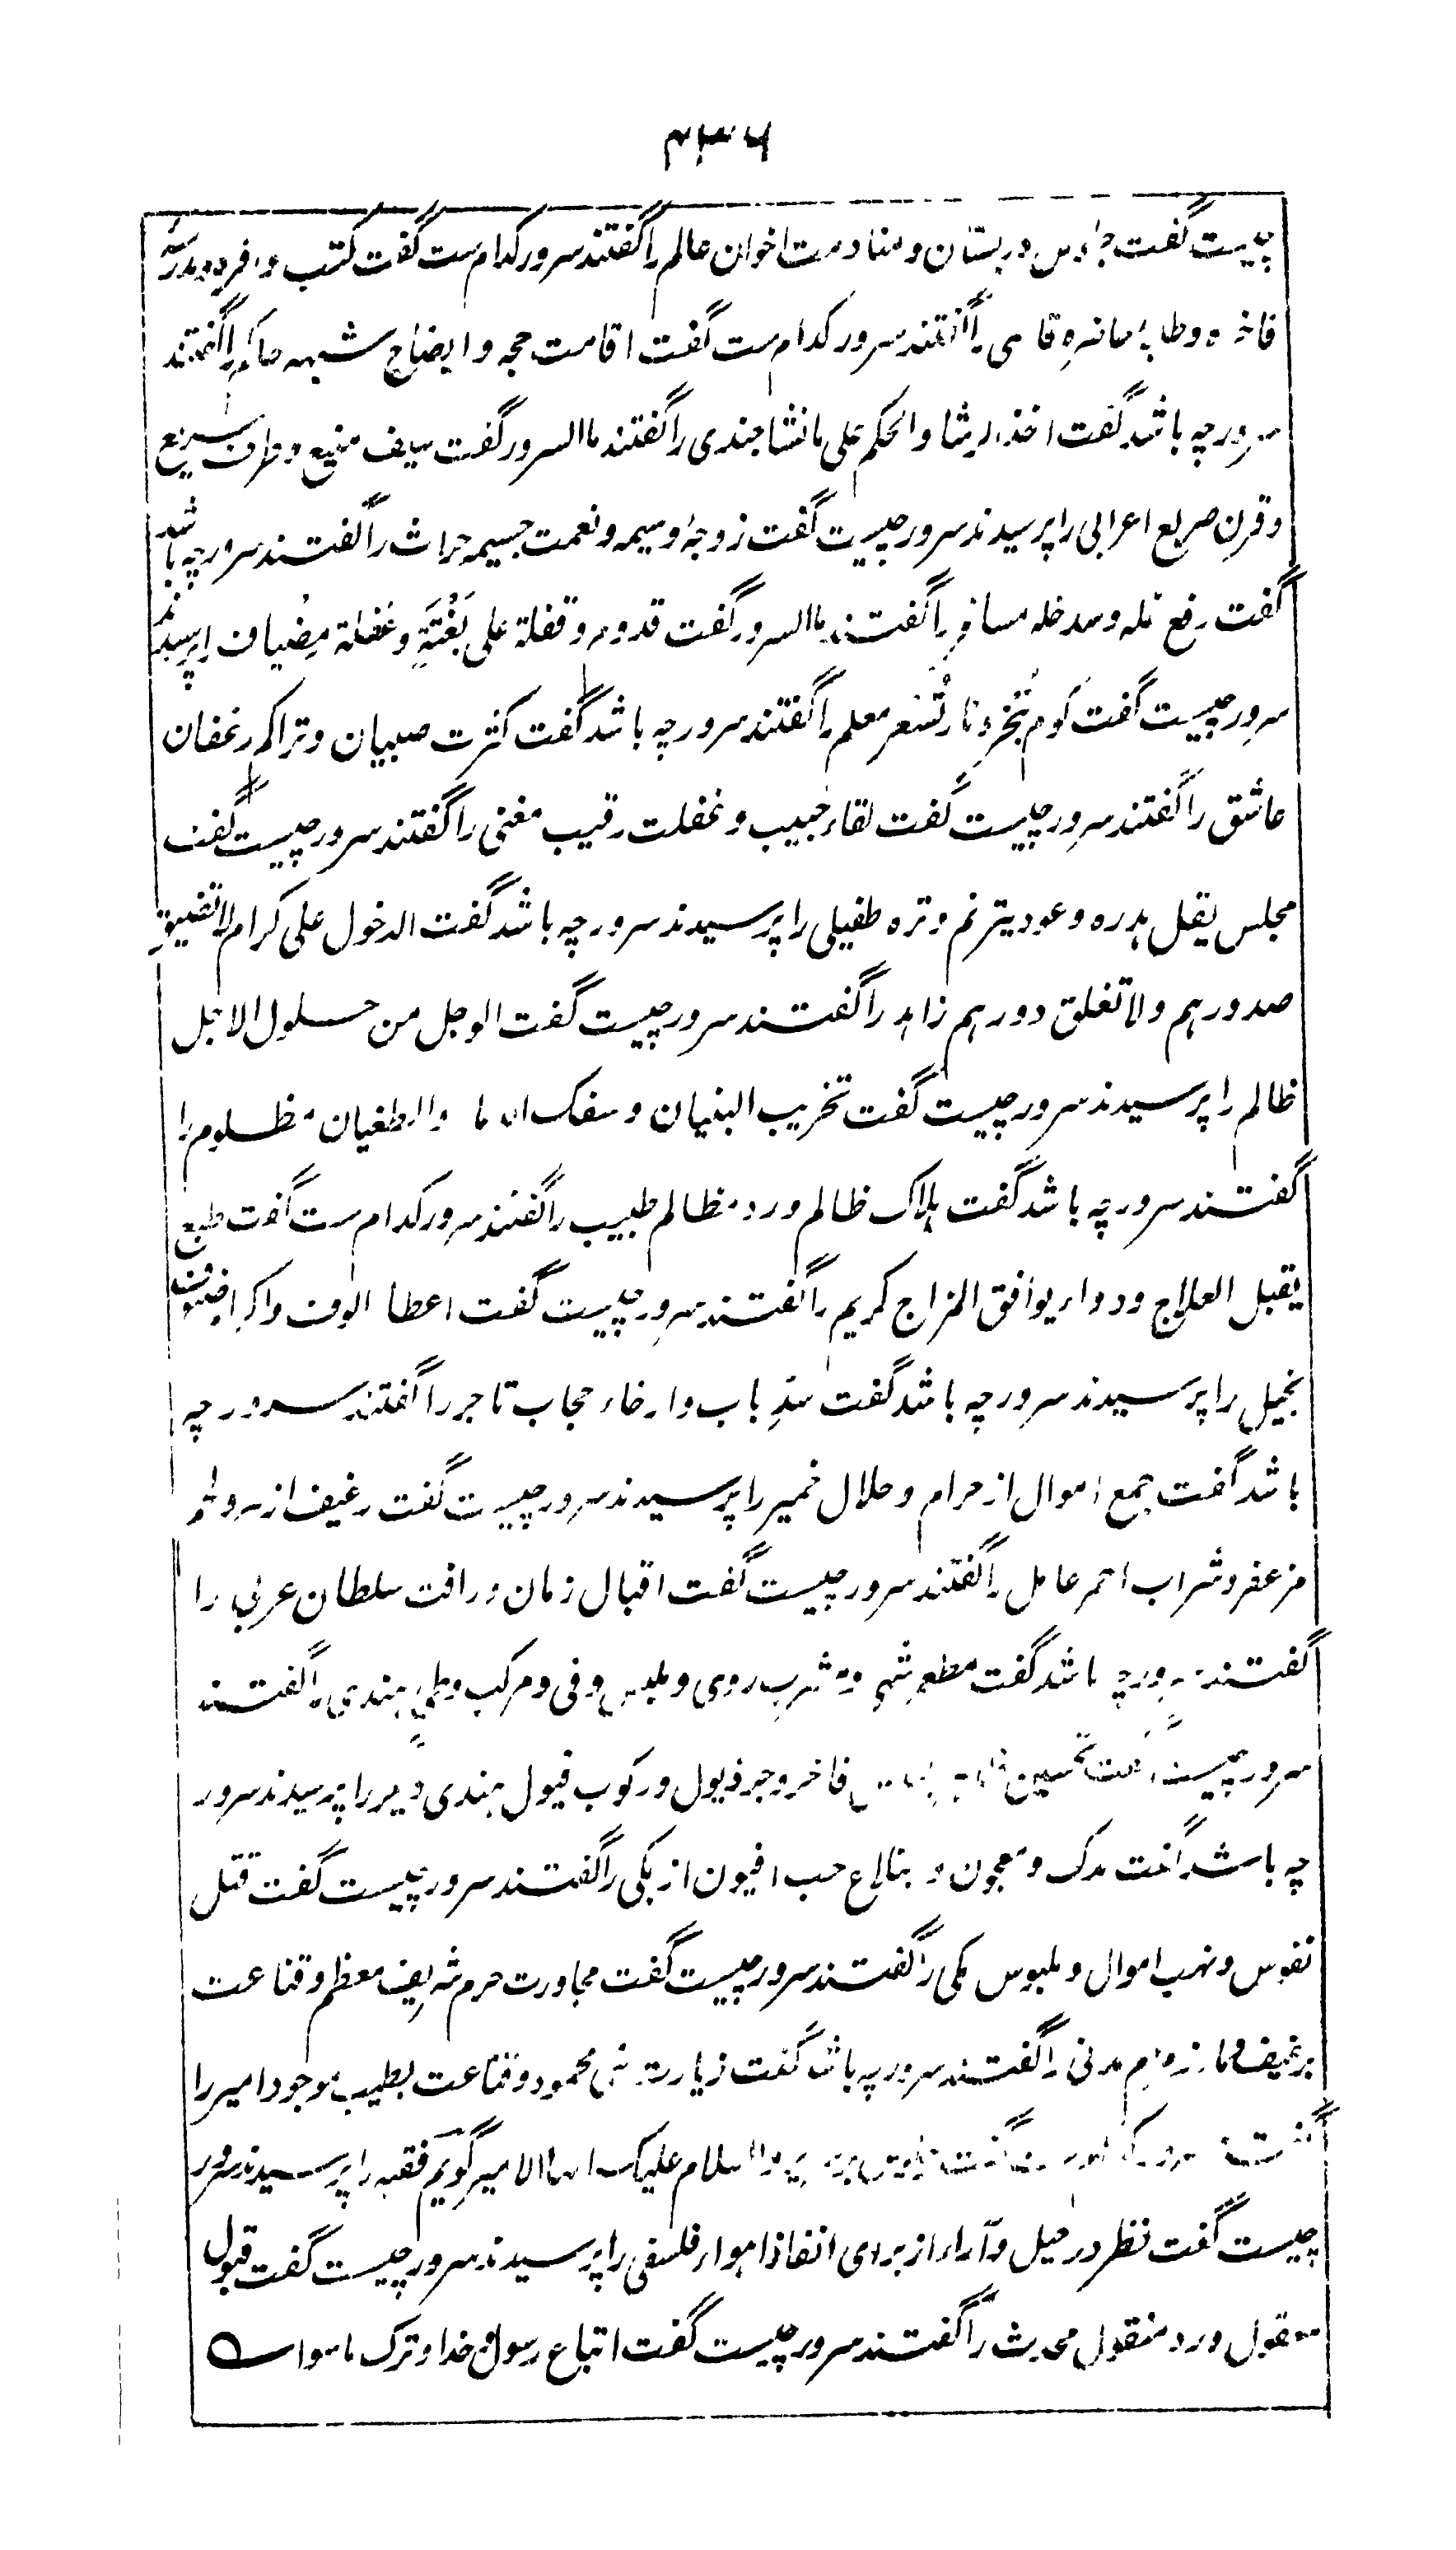 ۴۳۶
چیست گفت جلوس در بستان و منادمت اخوان عالم را گفتند سرور کدام ست گفت کتب وافره و مدرسهٔ
فاخره و طلبهٔ را گفتند سرور کدام ست گفت اقامت حجه و ایضاح شبهه حاکم را گفتند
سرور چه باشد گفت اخذ الرشا و الحکم علی ما نشا جندی را گفتند ما السرور گفت سیف منیع و طرف سریع
و قرن صریع اعرابی را پرسیدند سرور چیست گفت زوجهٔ وسیمه و نعمت جسیمه حراث را گفتند سرور چه باشد
گفت رفع غله و سد خله مسافر را گفتند ما السرور گفت قدوم و قفلة علی بَغْتَةٍ و غفلة مِضْیاف را پرسیدند
سرور چیست گفت کوم تُنْحَر و نار تُسْعَر معلم را گفتند سرور چه باشد گفت کثرت صبیان و تراکم رغفان
عاشق را گفتند سرور چیست گفت لقاء حبیب و غفلت رقیب مغنی را گفتند سرور چیست گفت
مجلس یقل هدره و عود یترنم وتره طفیلی را پرسیدند سرور چه باشد گفت الدخول علی کرام لا تضیق
صدورهم و لا تغلق دورهم زاهد را گفتند سرور چیست گفت الوجل من حلول الاجل
ظالم را پرسیدند سرور چیست گفت تخریب البنیان و سفک الدما والطغیان مظلوم را
گفتند سرور چه باشد گفت هلاک ظالم و رد مظالم طبیب را گفتند سرور کدام ست گفت طبع
یقبل العلاج و دواء یوافق المزاج کریم را گفتند سرور چیست گفت اعطا الوف و اکرام ضیوف
بخیل را پرسیدند سرور چه باشد گفت سدِّ باب و ارخاء حجاب تاجر را گفتند سرور چه
باشد گفت جمع اموال از حرام و حلال خمیر را پرسیدند سرور چیست گفت رغیف از سر و لحم
مزعفر و شراب احمر عامل را گفتند سرور چیست گفت اقبال زمان و رافت سلطان عربی را
گفتند سرور چه باشد گفت مطعم شهی و مشرب روی و ملبس وفی و مرکب وطی هندی را گفتند
سرور چیست گفت تحسین فاخر و جر ذیول و رکوب فیول هندی دیگر را پرسیدند سرور
چه باشد گفت مدک و معجون و ابتلاع حب افیون ازبکی را گفتند سرور چیست گفت قتل
نفوس و نهب اموال و ملبوس مکی را گفتند سرور چیست گفت مجاورت حرم شریف معظم و قناعت
برغیف و ماء زمزم مدنی را گفتند سرور چه باشد گفت زیارت نبی محمود و قناعت بطیب موجود امیر را
گفتند سرور کدام ست گفت السلام علیک ایها الامیر گویم فقیه را پرسیدند سرور
چیست گفت نظر در حیل و آراء از برای انفاذ اهواء فلسفی را پرسیدند سرور چیست گفت قبول
معقول و رد منقول محدث را گفتند سرور چیست گفت اتباع رسول خدا و ترک ما سواے